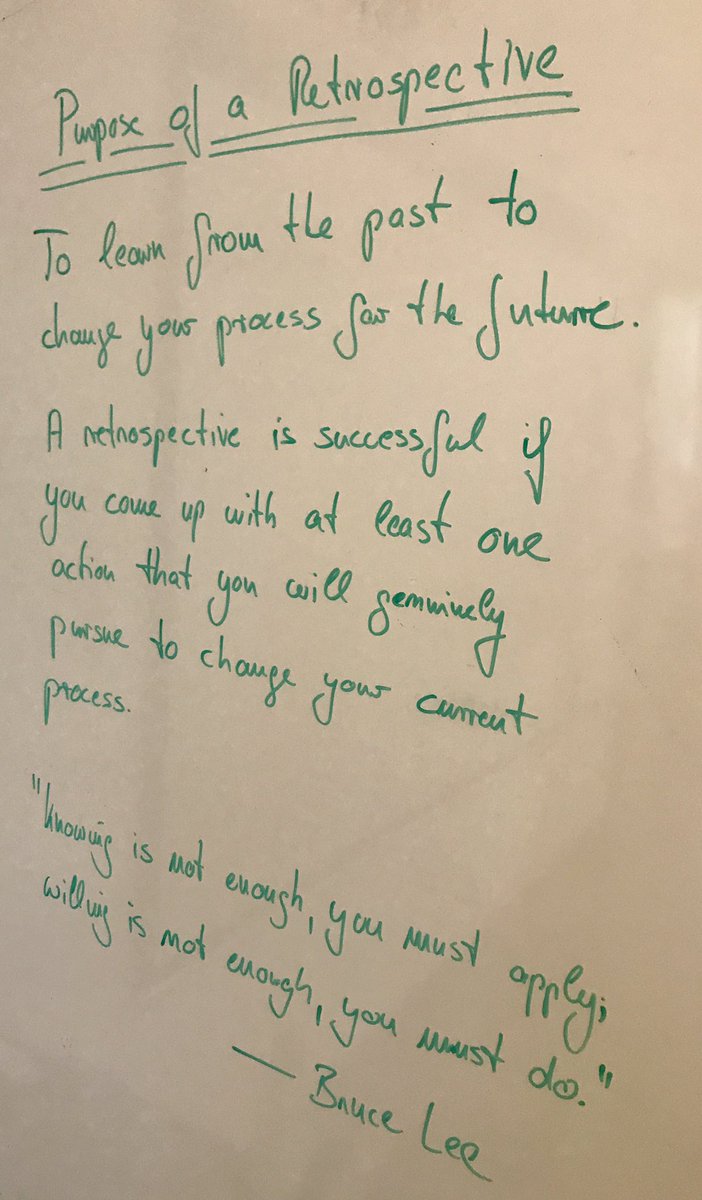 Purpose of a Retrospective
To learn from the past to
change your process for the future.
A retrospective is successful if
you come up with at least one
action that you will genuinely
pursue to change your current
process.
"Knowing is not enough, you must apply;
willing is not enough, you must do."
— Bruce Lee